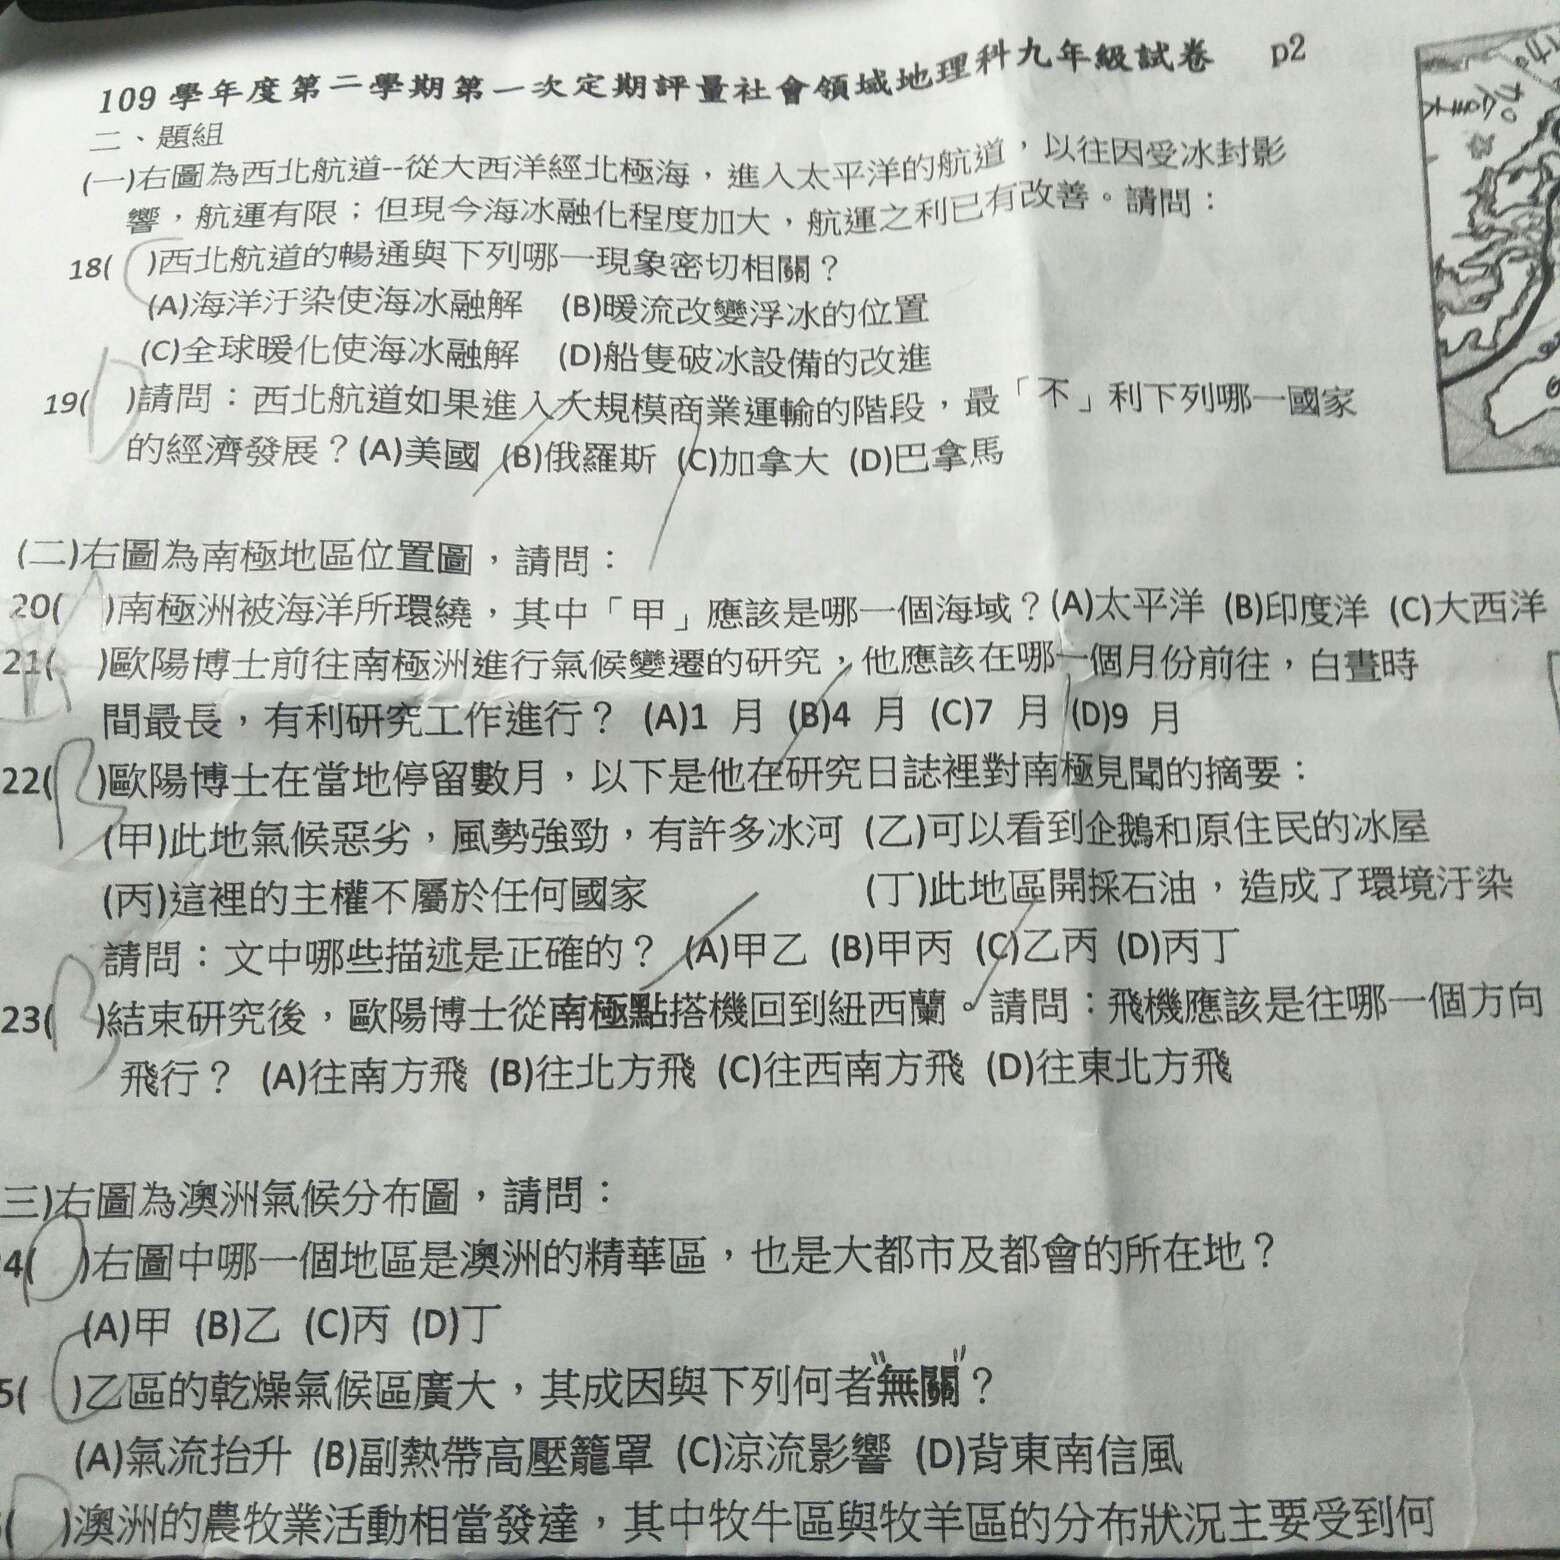 109 學年度第二學期第一次定期評量社會領域地理科九年級試卷 p2
二、題組
(一)右圖為西北航道--從大西洋經北極海，進入太平洋的航道，以往因受冰封影
響，航運有限；但現今海冰融化程度加大，航運之利已有改善。請問：
18( C )西北航道的暢通與下列哪一現象密切相關？
(A)海洋汙染使海冰融解 (B)暖流改變浮冰的位置
(C)全球暖化使海冰融解 (D)船隻破冰設備的改進
19( D )請問：西北航道如果進入大規模商業運輸的階段，最「不」利下列哪一國家
的經濟發展？(A)美國 (B)俄羅斯 (C)加拿大 (D)巴拿馬
(二)右圖為南極地區位置圖，請問：
20( A )南極洲被海洋所環繞，其中「甲」應該是哪一個海域？(A)太平洋 (B)印度洋 (C)大西洋
21( A )歐陽博士前往南極洲進行氣候變遷的研究，他應該在哪一個月份前往，白晝時
間最長，有利研究工作進行？ (A)1 月 (B)4 月 (C)7 月 (D)9 月
22( B )歐陽博士在當地停留數月，以下是他在研究日誌裡對南極見聞的摘要：
(甲)此地氣候惡劣，風勢強勁，有許多冰河 (乙)可以看到企鵝和原住民的冰屋
(丙)這裡的主權不屬於任何國家 (丁)此地區開採石油，造成了環境汙染
請問：文中哪些描述是正確的？ (A)甲乙 (B)甲丙 (C)乙丙 (D)丙丁
23( B )結束研究後，歐陽博士從南極點搭機回到紐西蘭。請問：飛機應該是往哪一個方向
飛行？ (A)往南方飛 (B)往北方飛 (C)往西南方飛 (D)往東北方飛
三)右圖為澳洲氣候分布圖，請問：
4( D )右圖中哪一個地區是澳洲的精華區，也是大都市及都會的所在地？
(A)甲 (B)乙 (C)丙 (D)丁
5( )乙區的乾燥氣候區廣大，其成因與下列何者"無關"？
(A)氣流抬升 (B)副熱帶高壓籠罩 (C)涼流影響 (D)背東南信風
( )澳洲的農牧業活動相當發達，其中牧牛區與牧羊區的分布狀況主要受到何